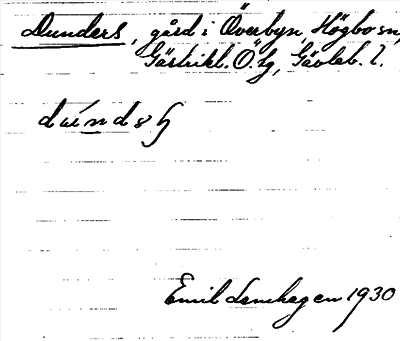 Dunders, gård i Överbyn, Högbo sn,
Gästrikl. Ö. tg, Gävleb. l.
Emil Lenhagen 1930